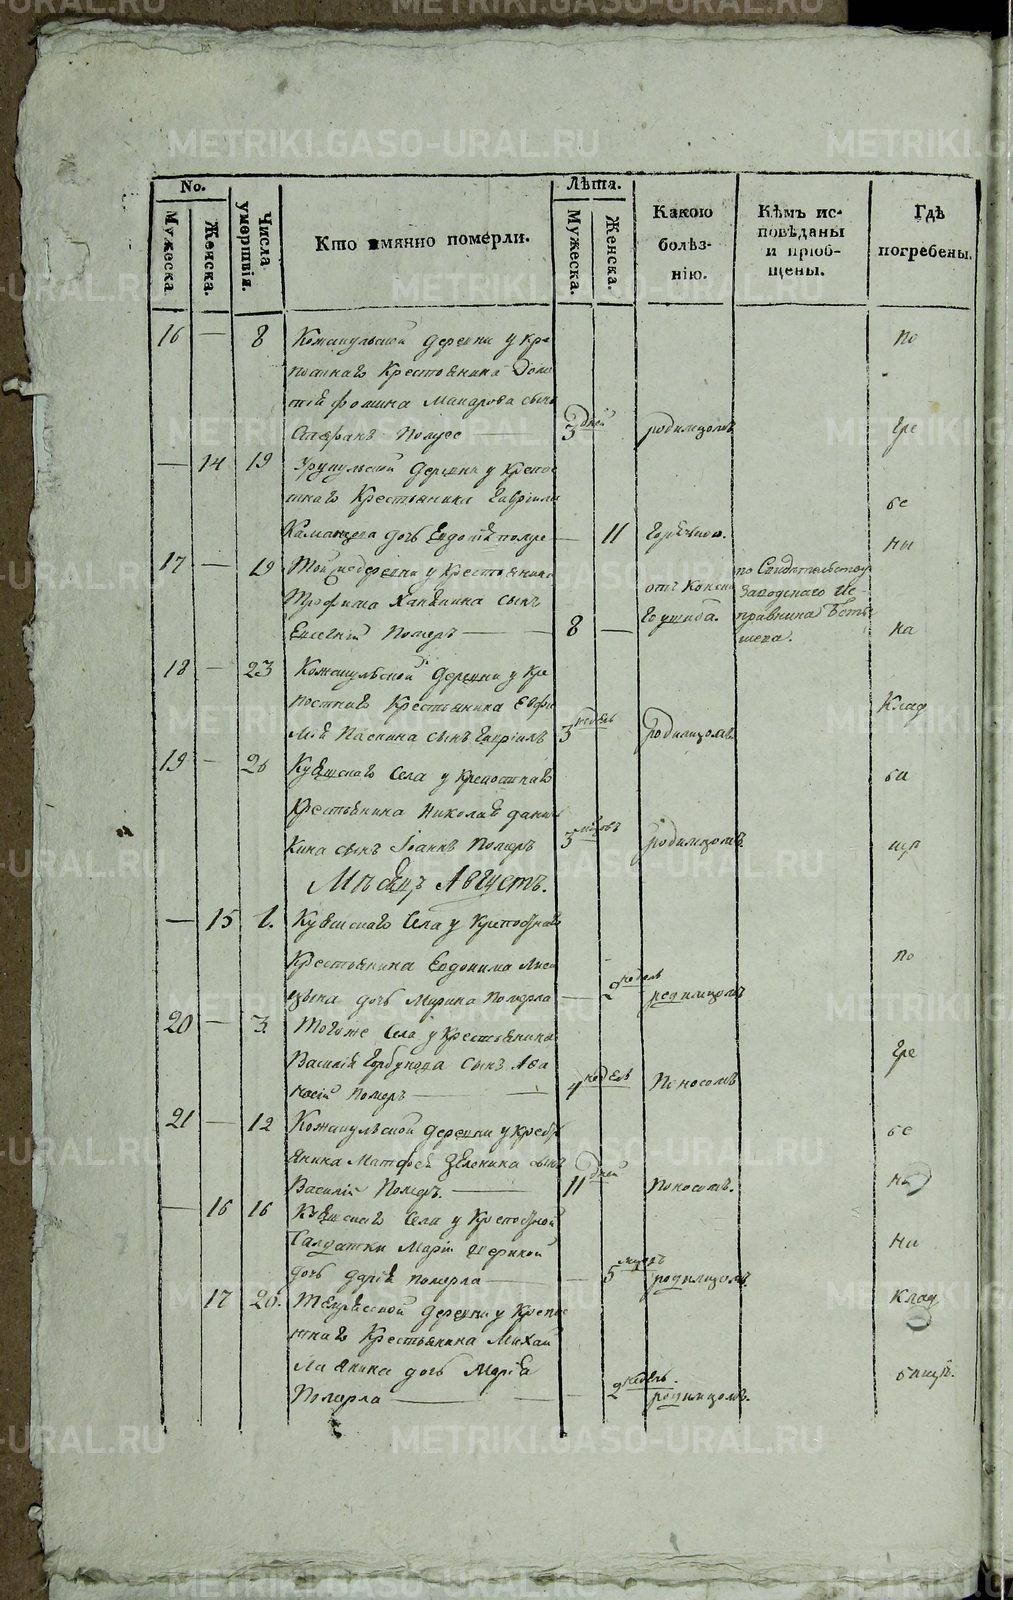 No.
Мужеска.
Женска.
Числа умершвія.
Кто имянно померли.
Лѣта.
Мужеска.
Женска.
Какою болѣз-
нію.
Кѣмъ ис-
повѣданы
и пріоб-
щены.
Гдѣ
погребены.
16 — 8 Кожакульской деревни у кре
постнаго Крестьянина
Фомина Макарова сынъ
Стефанъ Помре — 3 дней родимцомъ
— 14 19 деревни у Крепос
тнаго Крестьянина Гавріила
дочь Евдокія помре — 11 Горячкою.
17 — 19 Той же деревни у Крестьянина
Трофима сынъ
Евсегній Померъ — 8 — отъ Конска
го ушиба. по Свидѣтельству
Заводскаго Ис-
правника
18 — 23 Кожакульской деревни у Кре
постнаго Крестьянина Евфи
мія Паснина сынъ Гавріилъ 3 недель родимцомъ
19 — 26 Куяшскаго Села у Крепостнаго
Крестьянина Николая Данил
кина сынъ Іоаннъ Померъ 3 родимцомъ.
Мѣсяцъ Августъ.
— 15 1. Куяшскаго Села у Крепостнаго
Крестьянина Евдокима Лиси
цына дочь Марина Померла — 2 недель родимцомъ
20 — 3. Тогоже Села у Крестьянина
Василія Горбунова сынъ Афа
насій Померъ — 4 недель Поносомъ
21 — 12 Кожакульской деревни у Крест
янина Матфея Зеленина сынъ
Василій Померъ. — 11 дней Поносомъ.
— 16 16 Куяшскаго Села у Крепостной
Салдатки Маріи
дочь Дарія померла — 5 родимцомъ.
17 26. деревни у Крепос
тнаго Крестьянина Михаи
ла Янина дочь Марія
Померла — 2 недель. родимцомъ.
По
гре
бе
ны
на
Клад
би
щѣ
По
гре
бе
ны
на
Клад
бищѣ.
METRIKI.GASO-URAL.RU